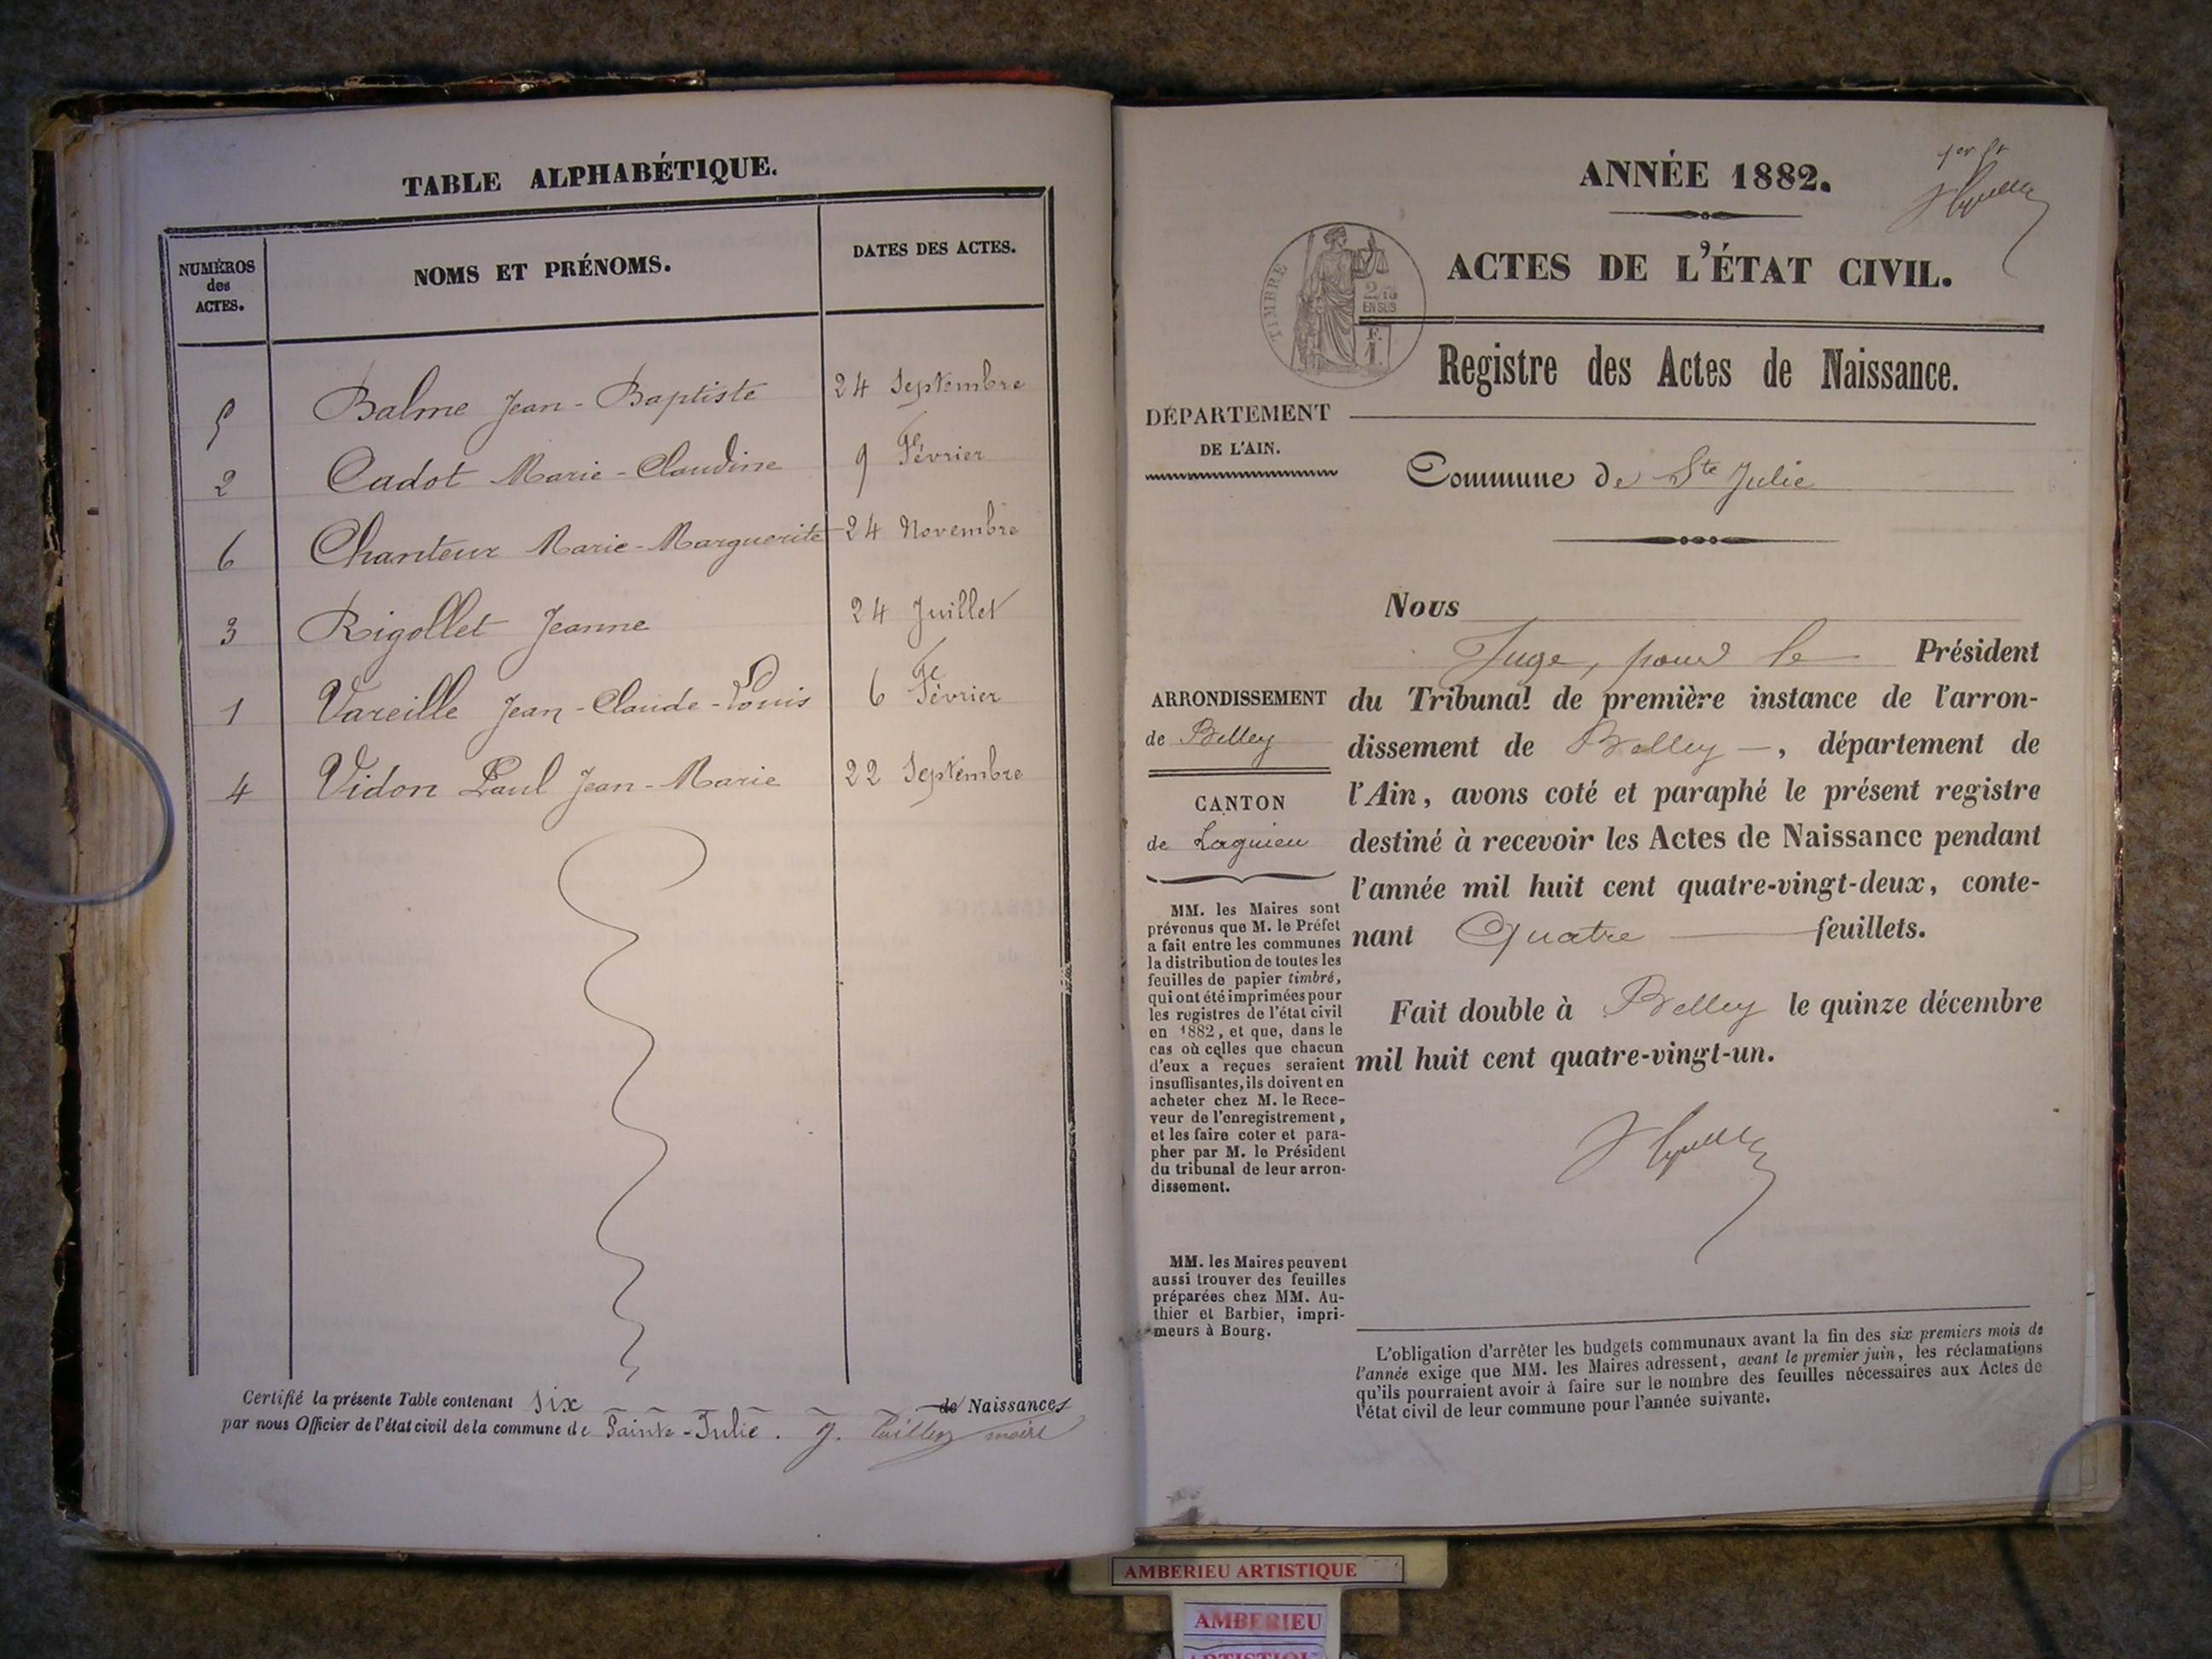 TABLE ALPHABÉTIQUE.
NUMÉROS
des
ACTES.
NOMS ET PRÉNOMS.
DATES DES ACTES.
5 Balme Jean-Baptiste 24 Septembre
2 Cadot Marie-Claudine 9 Février
6 Chanteur Marie-Marguerite 24 Novembre
3 Rigollet Jeanne 24 Juillet
1 Vareille Jean-Claude-Louis 6 Février
4 Vidon Paul Jean-Marie 22 Septembre
Certifié la présente Table contenant six de Naissances
par nous Officier de l'état civil de la commune de Sainte-Julie. maire
ANNÉE 1882.
TIMBRE
2/10
EN SUS
F.
1.
ACTES DE L'ÉTAT CIVIL.
Registre des Actes de Naissance.
DÉPARTEMENT
DE L'AIN.
Commune de Ste Julie
ARRONDISSEMENT
de Belley
CANTON
de Lagnieu
MM. les Maires sont
prévenus que M. le Préfet
a fait entre les communes
la distribution de toutes les
feuilles de papier timbré,
qui ont été imprimées pour
les registres de l'état civil
en 1882, et que, dans le
cas où celles que chacun
d'eux a reçues seraient
insuffisantes, ils doivent en
acheter chez M. le Rece-
veur de l'enregistrement,
et les faire coter et para-
pher par M. le Président
du tribunal de leur arron-
dissement.
MM. les Maires peuvent
aussi trouver des feuilles
préparées chez MM. Au-
thier et Barbier, impri-
meurs à Bourg.
Nous
Juge, pour le Président
du Tribunal de première instance de l'arron-
dissement de Belley, département de
l'Ain, avons coté et paraphé le présent registre
destiné à recevoir les Actes de Naissance pendant
l'année mil huit cent quatre-vingt-deux, conte-
nant Quatre feuillets.
Fait double à Belley le quinze décembre
mil huit cent quatre-vingt-un.
L'obligation d'arrêter les budgets communaux avant la fin des six premiers mois de
l'année exige que MM. les Maires adressent, avant le premier juin, les réclamations
qu'ils pourraient avoir à faire sur le nombre des feuilles nécessaires aux Actes de
l'état civil de leur commune pour l'année suivante.
AMBERIEU ARTISTIQUE
AMBERIEU